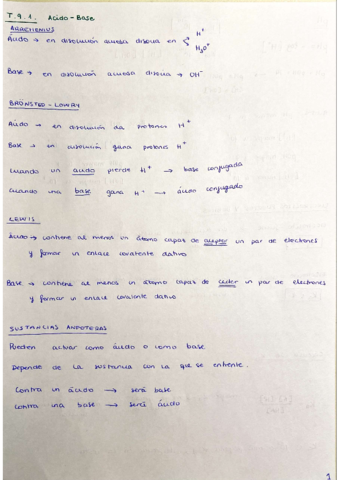 T.9.1. Ácido-Base
ARRHENIUS
Ácido → en disolución acuosa disocia en H+
H3O+
Base → en disolución acuosa disocia → OH-
BRONSTED-LOWRY
Ácido → en disolución da protones H+
Base → en disolución gana protones H+
Cuando un ácido pierde H+ → base conjugada
Cuando una base gana H+ → ácido conjugado
LEWIS
Ácido → contiene al menos un átomo capaz de aceptar un par de electrones
y formar un enlace covalente dativo
Base → contiene al menos un átomo capaz de ceder un par de electrones
y formar un enlace covalente dativo
SUSTANCIAS ANFÓTERAS
Pueden actuar como ácido o como base
Depende de la sustancia con la que se enfrente.
Contra un ácido → será base
Contra una base → será ácido
1